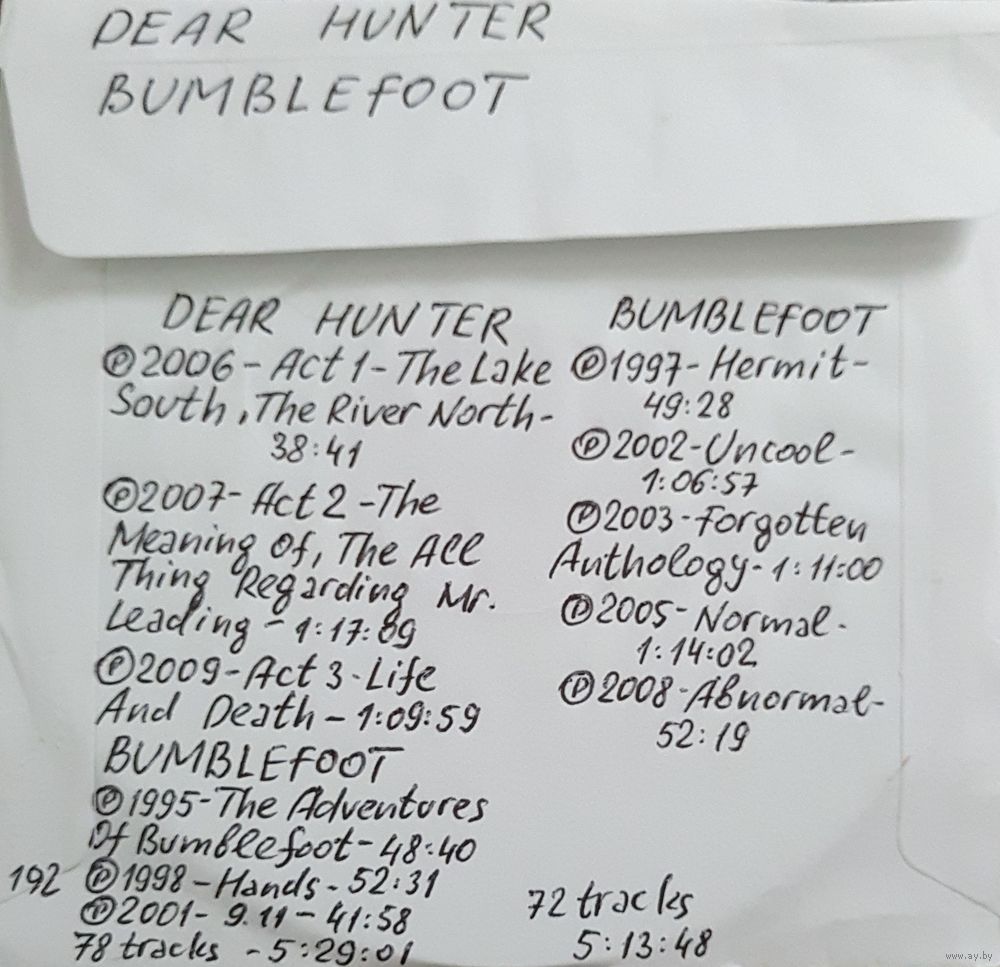 DEAR HUNTER
BUMBLEFOOT
DEAR HUNTER
Ⓟ2006 - Act 1 - The Lake
South, The River North -
38:41
Ⓟ2007 - Act 2 - The
Meaning Of, The All
Thing Regarding Mr.
Leading - 1:17:09
Ⓟ2009 - Act 3 - Life
And Death - 1:09:59
BUMBLEFOOT
Ⓟ1995 - The Adventures
Of Bumblefoot - 48:40
192 Ⓟ1998 - Hands - 52:31
Ⓟ2001 - 9.11 - 41:58
78 tracks - 5:29:01
BUMBLEFOOT
Ⓟ1997 - Hermit -
49:28
Ⓟ2002 - Uncool -
1:06:57
Ⓟ2003 - Forgotten
Anthology - 1:11:00
Ⓟ2005 - Normal -
1:14:02
Ⓟ2008 - Abnormal -
52:19
72 tracks
5:13:48
www.ay.by